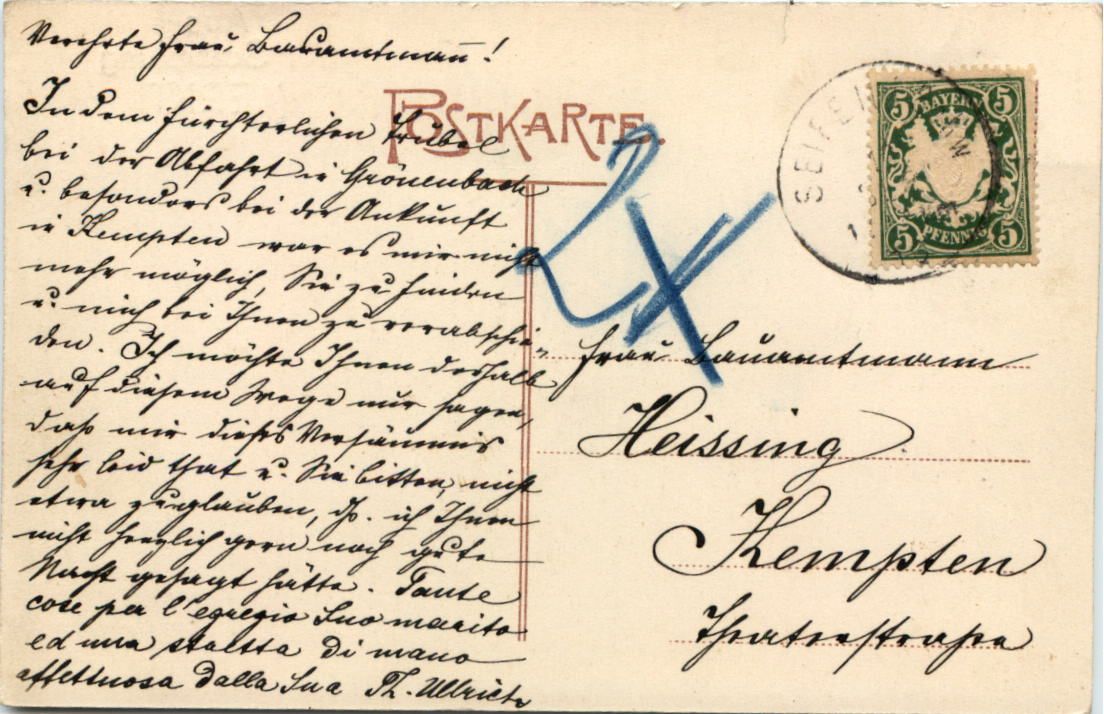 Verehrte Frau Bauamtmann!
In dem fürchterlichen Trubel
bei der Abfahrt in Grönenbach
u. besonders bei der Ankunft
in Kempten war es mir nicht
mehr möglich, Sie zu finden
u. mich bei Ihnen zu verabschie-
den. Ich möchte Ihnen deshalb
auf diesem Wege nur sagen,
daß mir dieses Versäumnis
sehr leid that u. Sie bitten, nicht
etwa zu glauben, dß. ich Ihnen
nicht herzlich gern noch gute
Nacht gesagt hätte. Tante
cose per l'egregio Suo marito
ed una stretta di mano
affettuosa dalla Sua Th. Ullrich
POSTKARTE.
5 BAYERN 5
5 PFENNIG 5
Frau Bauamtmann
Heissing
Kempten
Theaterstraße